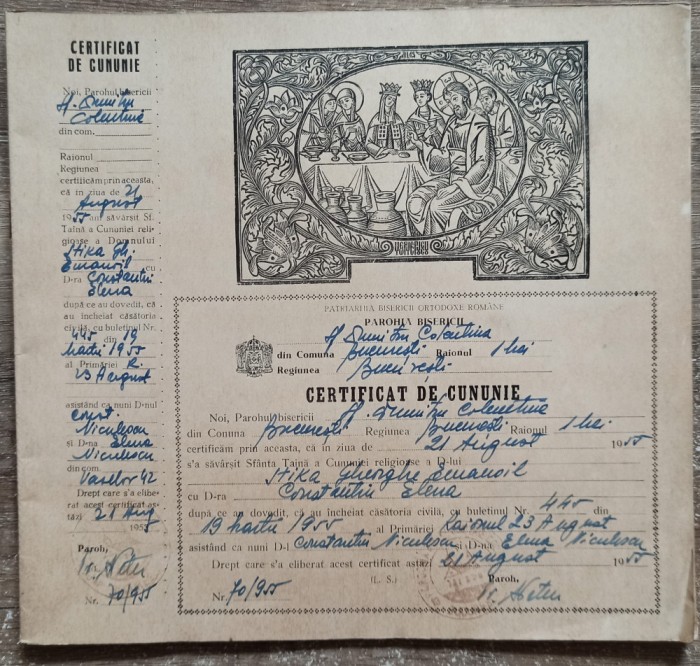 CERTIFICAT
DE CUNUNIE
Noi, Parohul bisericii
Sf. Dumitru
Colentina
din com.
Raionul
Regiunea
certificăm prin aceasta,
că în ziua de 21
August
1955 am săvârşit Sf.
Taină a Cununiei reli-
gioase a Domnului
Stika Gh.
Emanoil cu
D-ra Constantin
Elena
după ce au dovedit, că
au încheiat căsătoria
civilă, cu buletinul Nr.
445 din 19
Martie 1955
al Primăriei R.
23 August
asistând ca nuni D-nul
Const.
Niculescu
şi D-na Elena
Niculescu
din com.
Vaselor 42
Drept care s'a elibe-
rat acest certificat as-
tăzi 21 Aug
1955
Paroh,
Nr. 70/955
PATRIARHIA BISERICII ORTODOXE ROMÂNE
PAROHIA BISERICII
Sf Dumitru Colentina
din Comuna Bucureşti Raionul 1 Mai
Regiunea Bucureşti
CERTIFICAT DE CUNUNIE
Noi, Parohul bisericii Sf. Dumitru Colentina
din Comuna Bucureşti Regiunea Bucureşti Raionul 1 Mai
certificăm prin aceasta, că în ziua de 21 August 1955
s'a săvârşit Sfânta Taină a Cununiei religioase a D-lui
Stika Gheorghe Emanoil
cu D-ra Constantin Elena
după ce au dovedit, că au încheiat căsătoria civilă, cu buletinul Nr. 445 din
19 Martie 1955 al Primăriei Raionul 23 August
asistând ca nuni D-l Constantin Niculescu şi D-na Elena Niculescu
Drept care s'a eliberat acest certificat astăzi 21 August 1955
(L. S.) Paroh,
Nr. 70/955